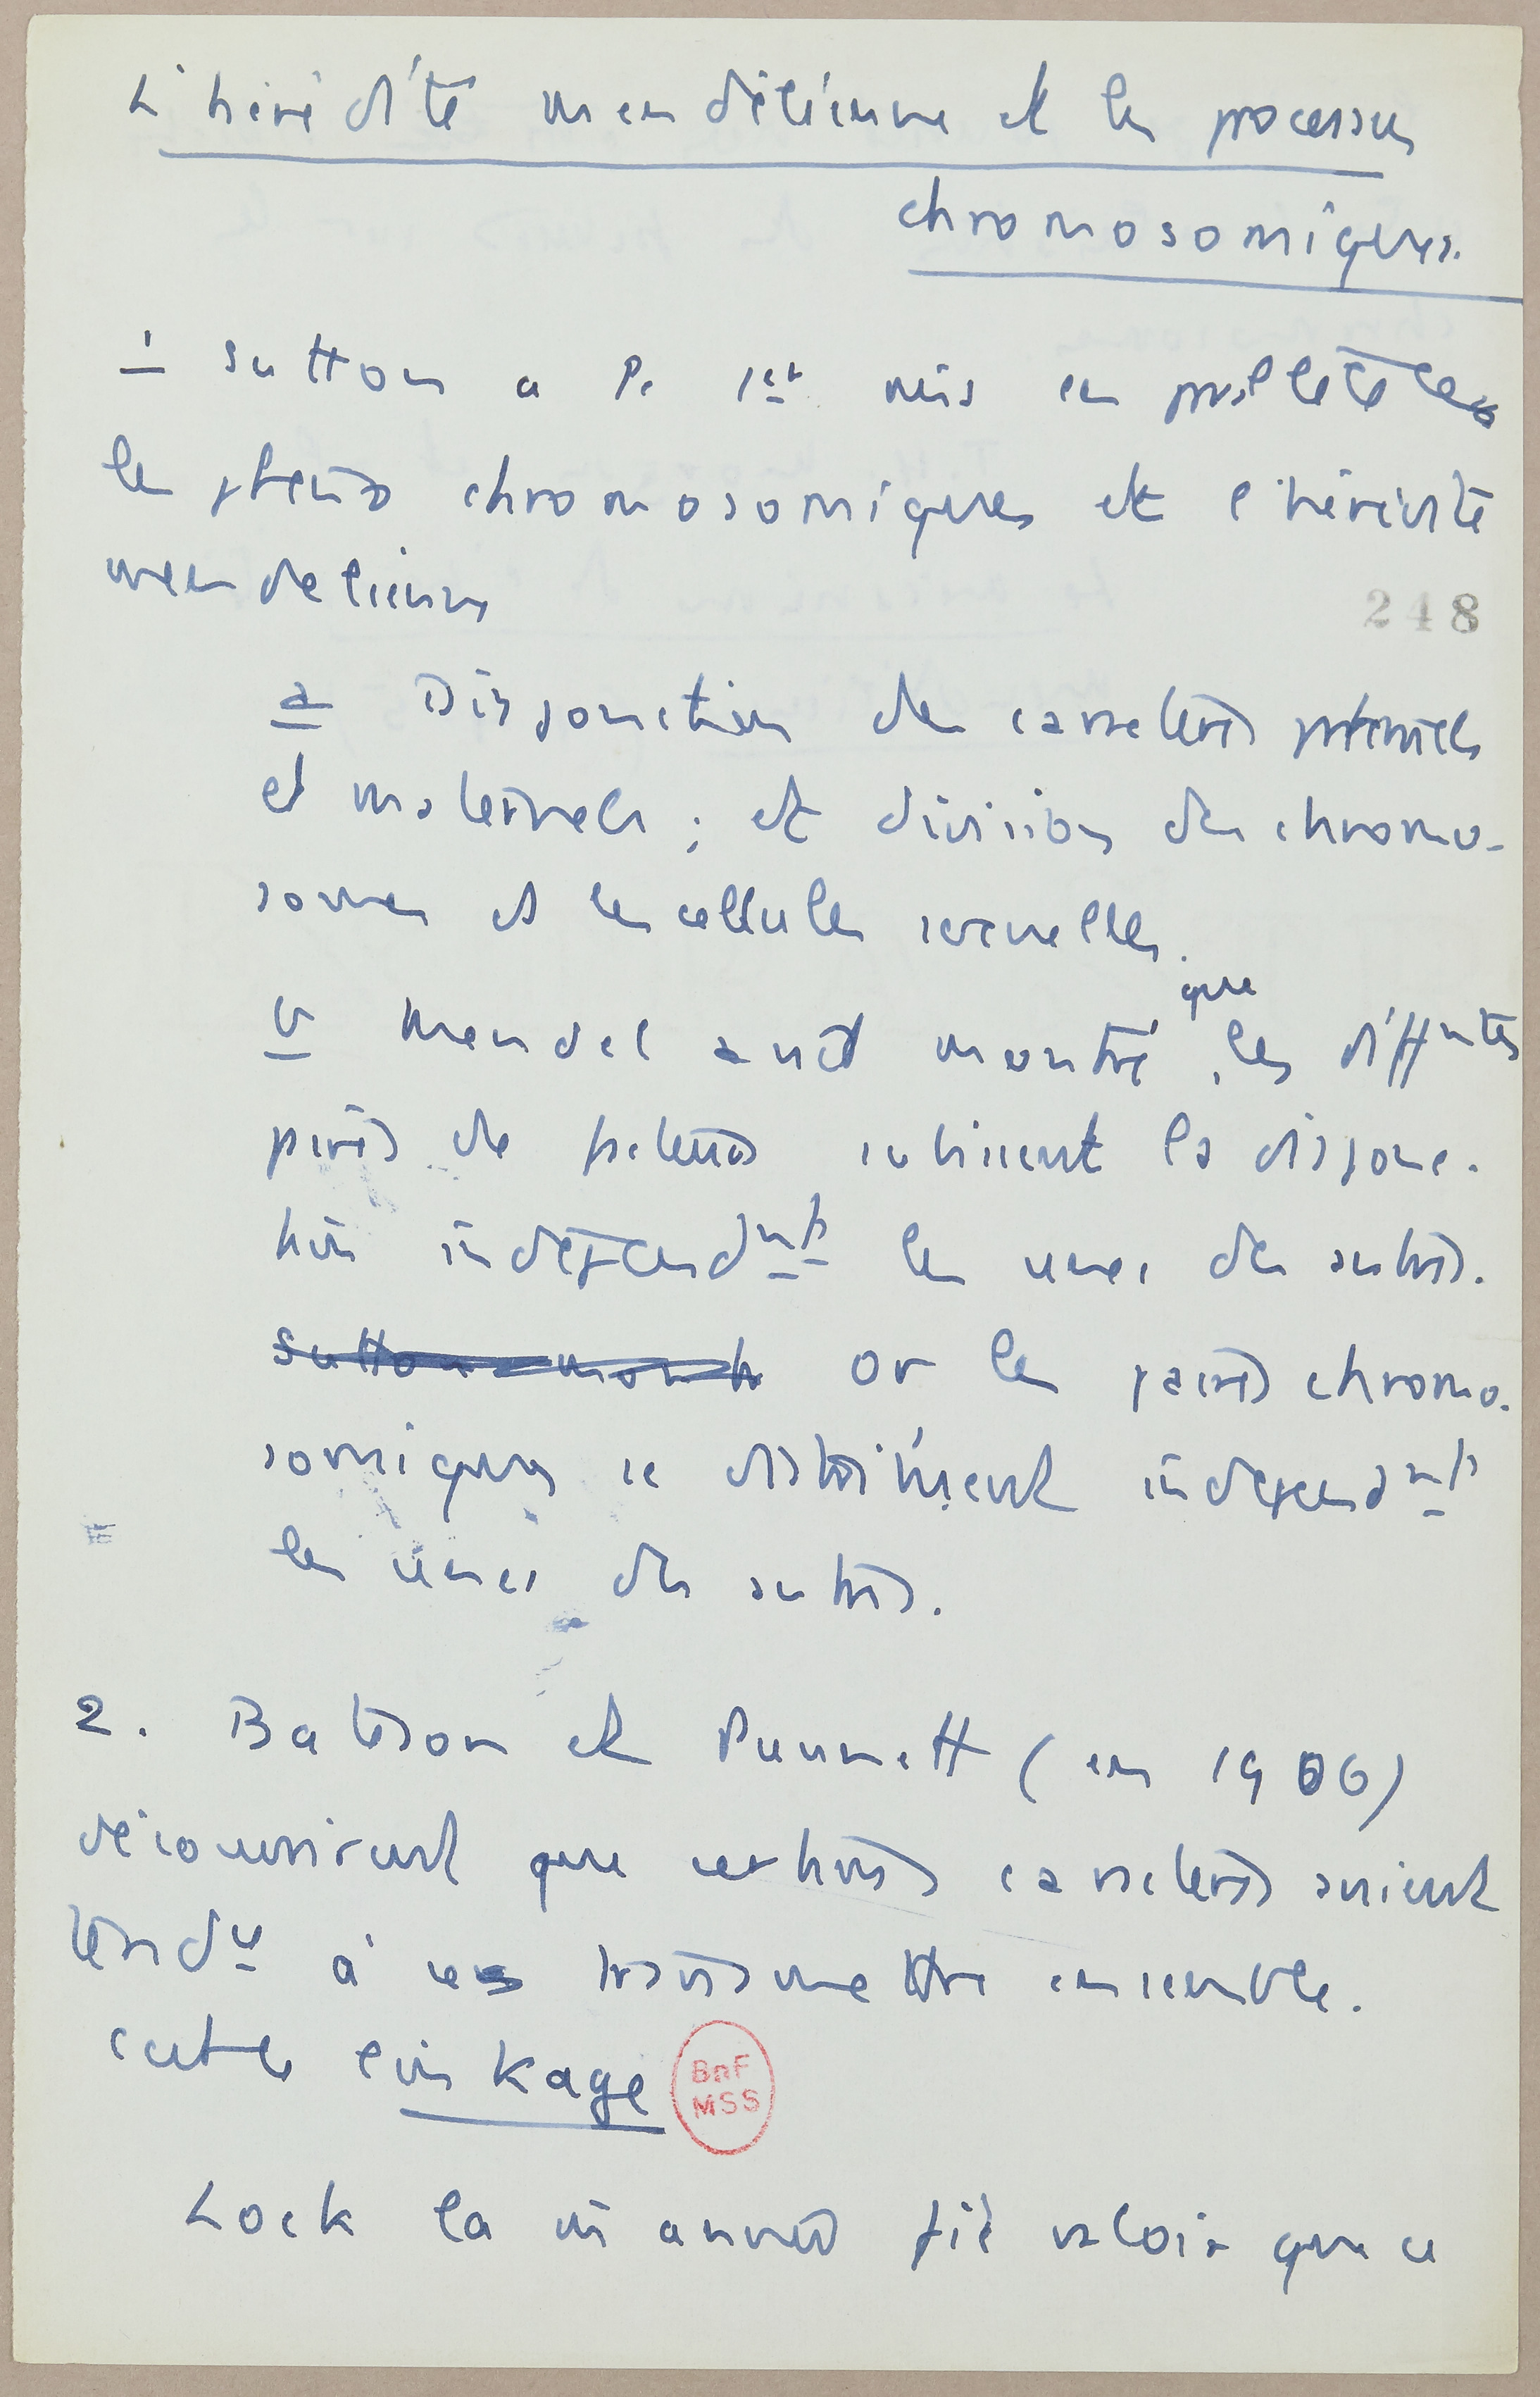 L'hérédité mendélienne et les processus
chromosomiques.
1 Sutton a le 1er mis en parallèle
les phéno chromosomiques et l'hérédité
mendelienne
248
a Disjonction des caractères paternels
et maternels ; et division des chromo-
somes et les cellules sexuelles.
b Mendel avait montré que les diffntes
paires de facteurs subissent la disjonc-
tion indépendmt les unes des autres.
Sutton a montr Or les paires chromo-
somiques se distribuent independmt
les unes des autres.
2. Bateson et Punnett (en 1906)
découvrirent que certains caractères avaient
tendce à se transmettre ensemble.
c'est le linkage
BnF
MSS
Lock la m année fit valoir que ce